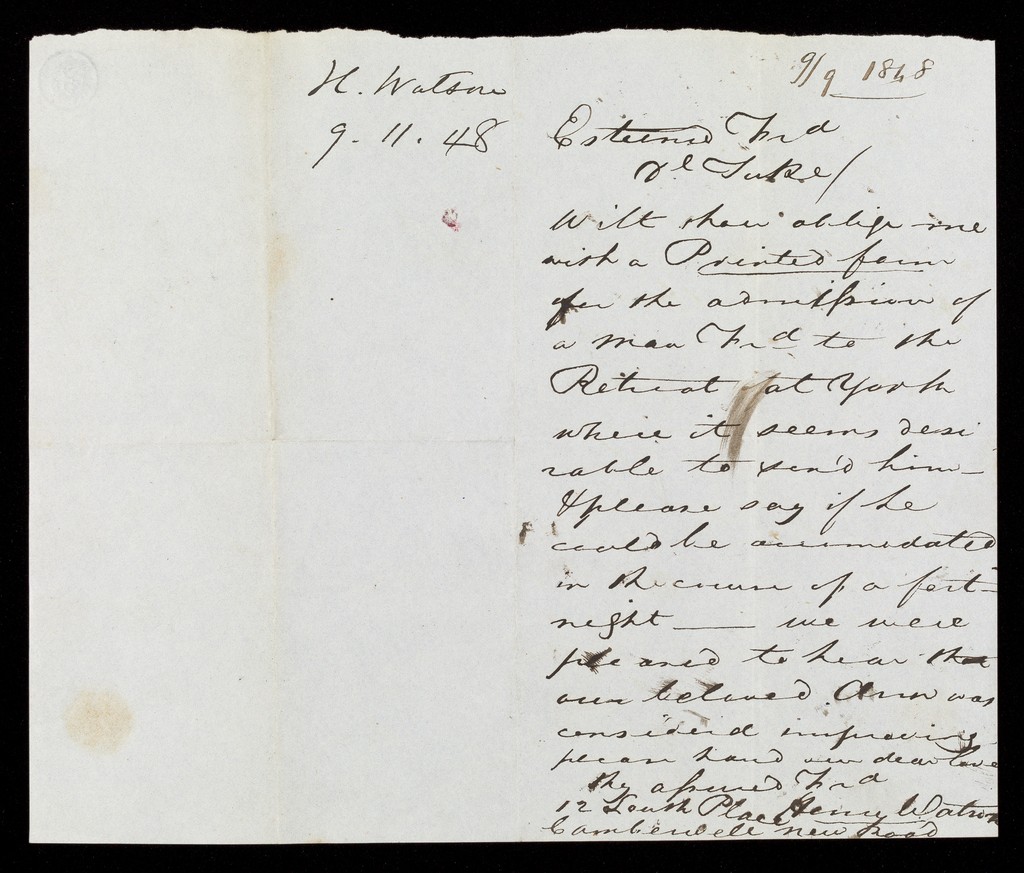 H. Watson
9. 11. 48
9/9 1848
Esteemed Frd
Dl Tuke/
Wilt thou oblige me
with a Printed form
for the admission of
a man Frd to the
Retreat at York
where it seems desi
rable to send him—
& please say if he
could be accomodated
in the course of a fort-
night — we were
pleased to hear that
our beloved Ann was
considered improving
please hand our dear love
thy assured Frd
Henry Watson
12 South Place
Camberwell new road